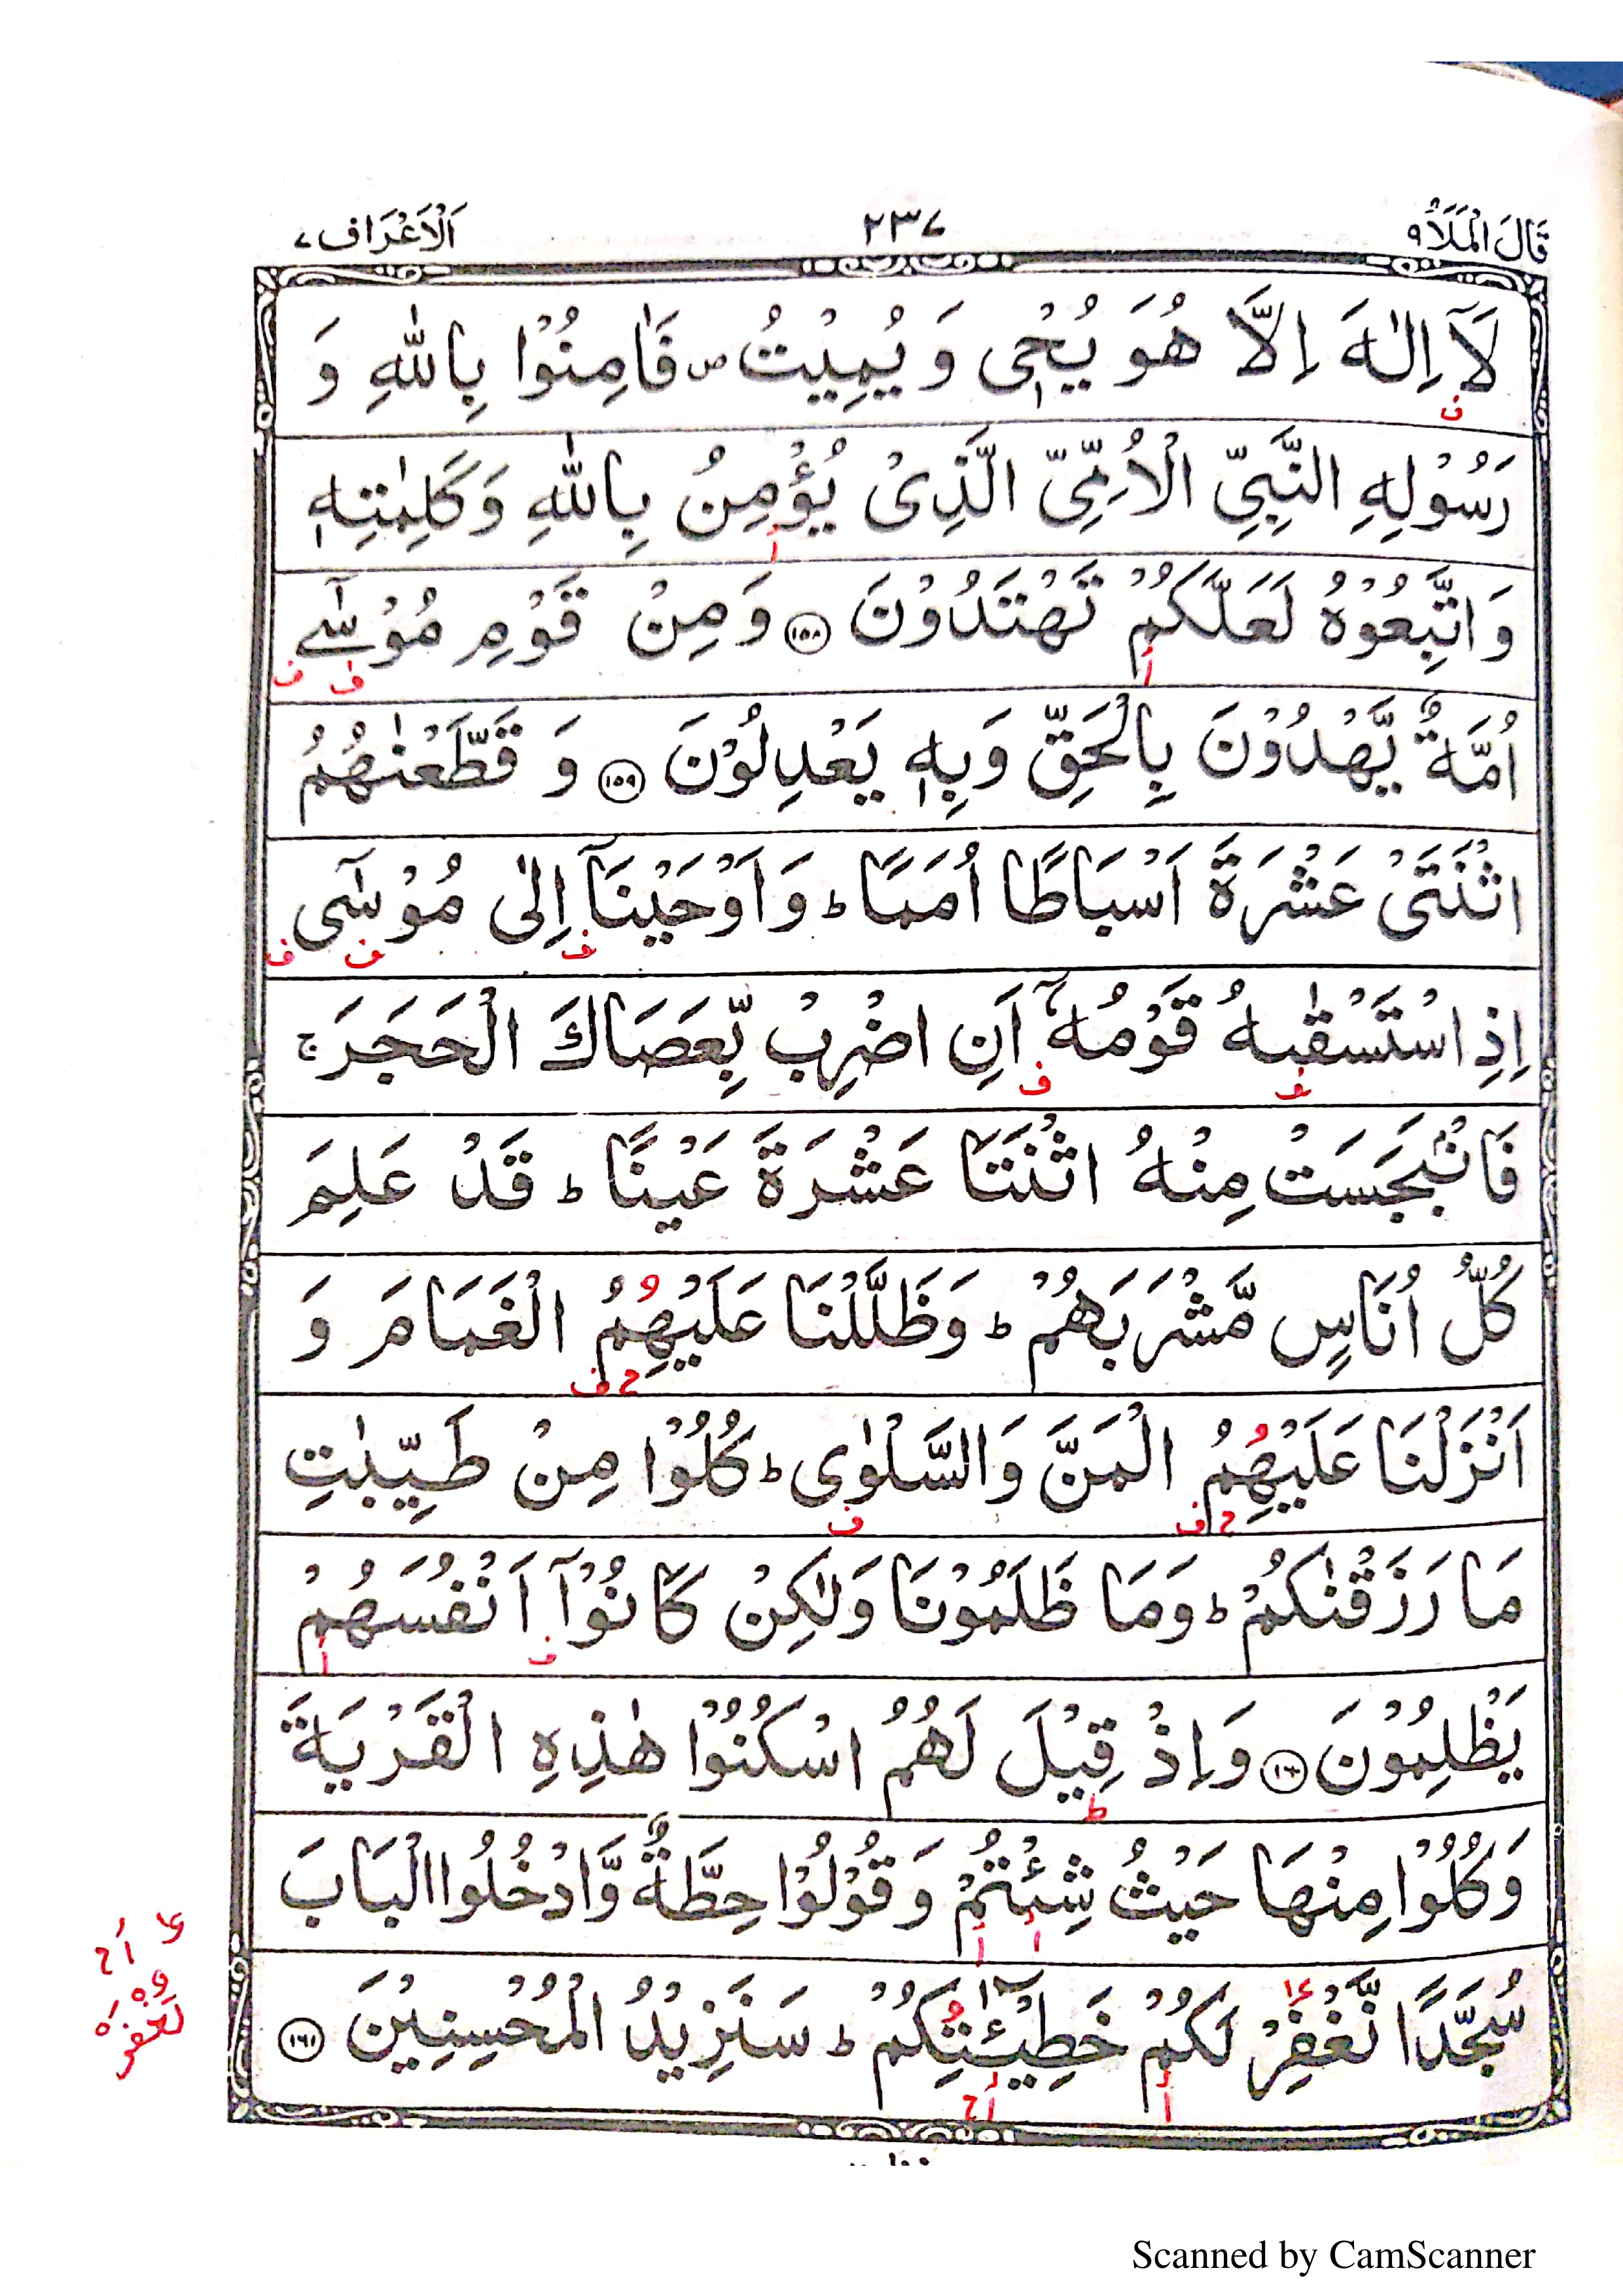 قَالَ الْمَلَاُ ٩ ٢٣٧ اَلْاَعْرَاف ٧
لَآ اِلٰهَ اِلَّا هُوَ يُحْيٖ وَ يُمِيْتُ ۪ فَاٰمِنُوْا بِاللّٰهِ وَ
ف
رَسُوْلِهِ النَّبِيِّ الْاُمِّيِّ الَّذِيْ يُؤْمِنُ بِاللّٰهِ وَكَلِمٰتِهٖ
أ
وَاتَّبِعُوْهُ لَعَلَّكُمْ تَهْتَدُوْنَ ١٥٨ وَمِنْ قَوْمِ مُوْسٰٓى
أ ف ف
اُمَّةٌ يَّهْدُوْنَ بِالْحَقِّ وَبِهٖ يَعْدِلُوْنَ ١٥٩ وَ قَطَّعْنٰهُمُ
اثْنَتَيْ عَشْرَةَ اَسْبَاطًا اُمَمًا ؕ وَاَوْحَيْنَآ اِلٰى مُوْسٰٓى
ف ف ف
اِذِ اسْتَسْقٰىهُ قَوْمُهٗٓ اَنِ اضْرِبْ بِّعَصَاكَ الْحَجَرَ ۚ
ف ف
فَانْۢبَجَسَتْ مِنْهُ اثْنَتَا عَشْرَةَ عَيْنًا ؕ قَدْ عَلِمَ
كُلُّ اُنَاسٍ مَّشْرَبَهُمْ ؕ وَظَلَّلْنَا عَلَيْهِمُ الْغَمَامَ وَ
ح ف
اَنْزَلْنَا عَلَيْهِمُ الْمَنَّ وَالسَّلْوٰى ؕ كُلُوْا مِنْ طَيِّبٰتِ
ح ف ف
مَا رَزَقْنٰكُمْ ؕ وَمَا ظَلَمُوْنَا وَلٰكِنْ كَانُوْٓا اَنْفُسَهُمْ
ف أ
يَظْلِمُوْنَ ١٦٠ وَاِذْ قِيْلَ لَهُمُ اسْكُنُوْا هٰذِهِ الْقَرْيَةَ
ط
وَكُلُوْا مِنْهَا حَيْثُ شِئْتُمْ وَقُوْلُوْا حِطَّةٌ وَّادْخُلُوا الْبَابَ
أ أ
سُجَّدًا نَّغْفِرْ لَكُمْ خَطِيْٓـٰٔتِكُمْ ؕ سَنَزِيْدُ الْمُحْسِنِيْنَ ١٦١
أ أ ح
أ ح
Scanned by CamScanner